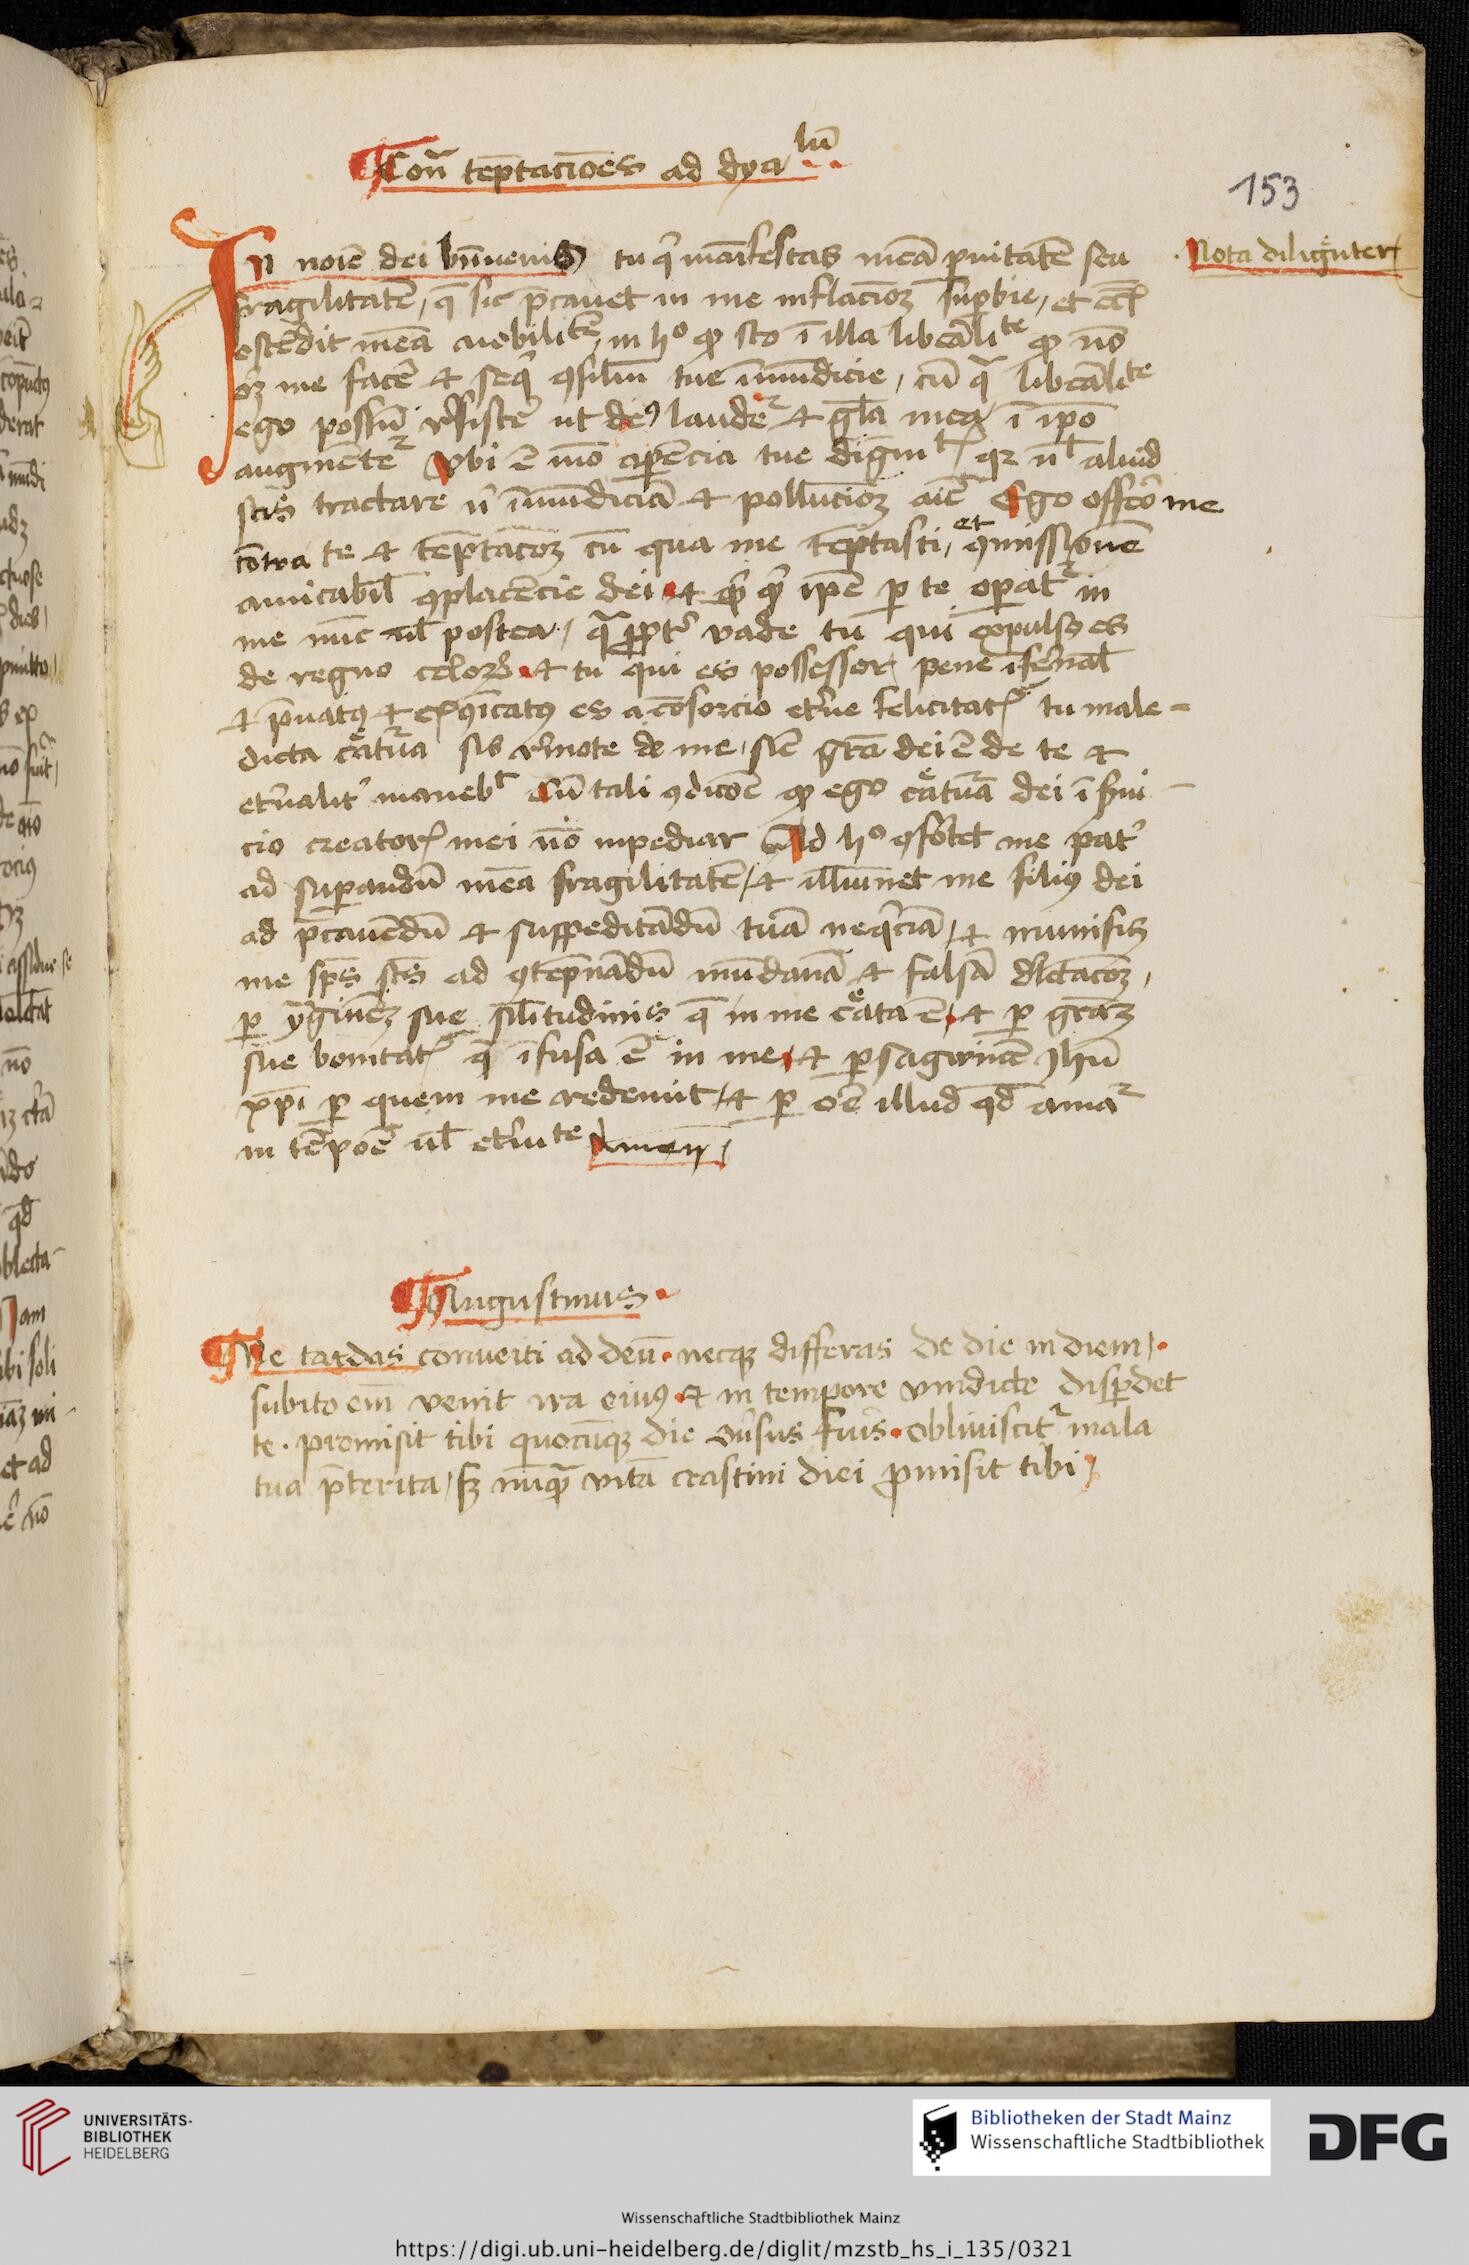 Cont̃ tep̄tacıo̅es ad dyalū
153
In noı̅e dei bn̄uenis tu q̇ manifestas meā prauitatē seu
Nota diligenter
fragilitatē, q̄ sic p̄cauet in me inflacio̅ꝫ supbie, et
oste̅dit meā nobilitatē, in hº ꝙ sto ı̅ illa libe̅alite ꝙ no̅
oꝫ me face̅ et seq̇ ꝯsiliu̅ tue i̅mu̅dicie, cu̅ qᵃ libe̅alite
ego possu̅ resiste̅ ut deꝰ laudet᷑ et gl̅a mea ı̅ ip̅o
augme̅tet᷑ vbi e̅ mo̅ aparencia tue dignit qꝛ nl̅ aliud
scis tractare n̄ ı̅mu̅diciā et pollucio̅ꝫ aı̅e Ego offero me
co̅tra te et tep̄taco̅ꝫ cu̅ qua me tep̄tasti, et ꝯmissione̅
amicabil̅ ꝯplacencie dei et ip̅e ꝑ te operat᷑ in
me nu̅c ul̅ postea, qᵃ propt̉ vade tu qui expulsꝰ es
de regno celoꝝ et tu qui es possessor pene ı̅fernal̅
et p̄uatꝰ et es a co̅sorcio et̉ne felicitat᷑ tu male-
dicta c̉atura sis remote de me, sic̅ gra̅ dei e̅ de te et
et̉nalit̉ maneb Cu̅ tali ꝯdico̅e ꝙ ego c̉atura̅ dei ı̅ s̉ui-
cio creator᷑ mei no̅ inpediar Ad hº ꝯfortet me pat̉
ad suꝑandu̅ mea̅ fragilitate̅, et illu̅i̅net me filiꝰ dei
ad p̄caue̅du̅ et suppedita̅du̅ tua̅ neq̇cia̅, et
me sp̄s sc̄s ad ꝯtep̄na̅du̅ mu̅dana̅ et falsa̅ delectaco̅ꝫ,
ꝑ ymagine̅ꝫ sue sil̅itudinis q̄ in me c̉ata e̅ et ꝑ gra̅ꝫ
sue bonitat᷑ q̄ ı̅fusa e̅ in me et ꝑ sagwine̅ Jhu̅
xp̄i ꝑ quem me redemit, et ꝑ o̅e illud qd̅ amat᷑
in te̅poe̅ ul̅ et̉nite Amen
Augustinus
Ne tardas conuerti ad deu̅ necqꝫ differas de die in diem
subito eni̅ venit ira eiuꝰ et in tempore vindicte disꝑdet
te. promisit tibi quocu̅qꝫ die ꝯu̅sus fuis̉ obliuiscit᷑ mala
tua p̄terita, sꝫ nu̅qᵃ vita̅ crastini diei ꝓmisit tibi
UNIVERSITÄTS-
BIBLIOTHEK
HEIDELBERG
Bibliotheken der Stadt Mainz
Wissenschaftliche Stadtbibliothek
DFG
Wissenschaftliche Stadtbibliothek Mainz
https://digi.ub.uni-heidelberg.de/diglit/mzstb_hs_i_135/0321